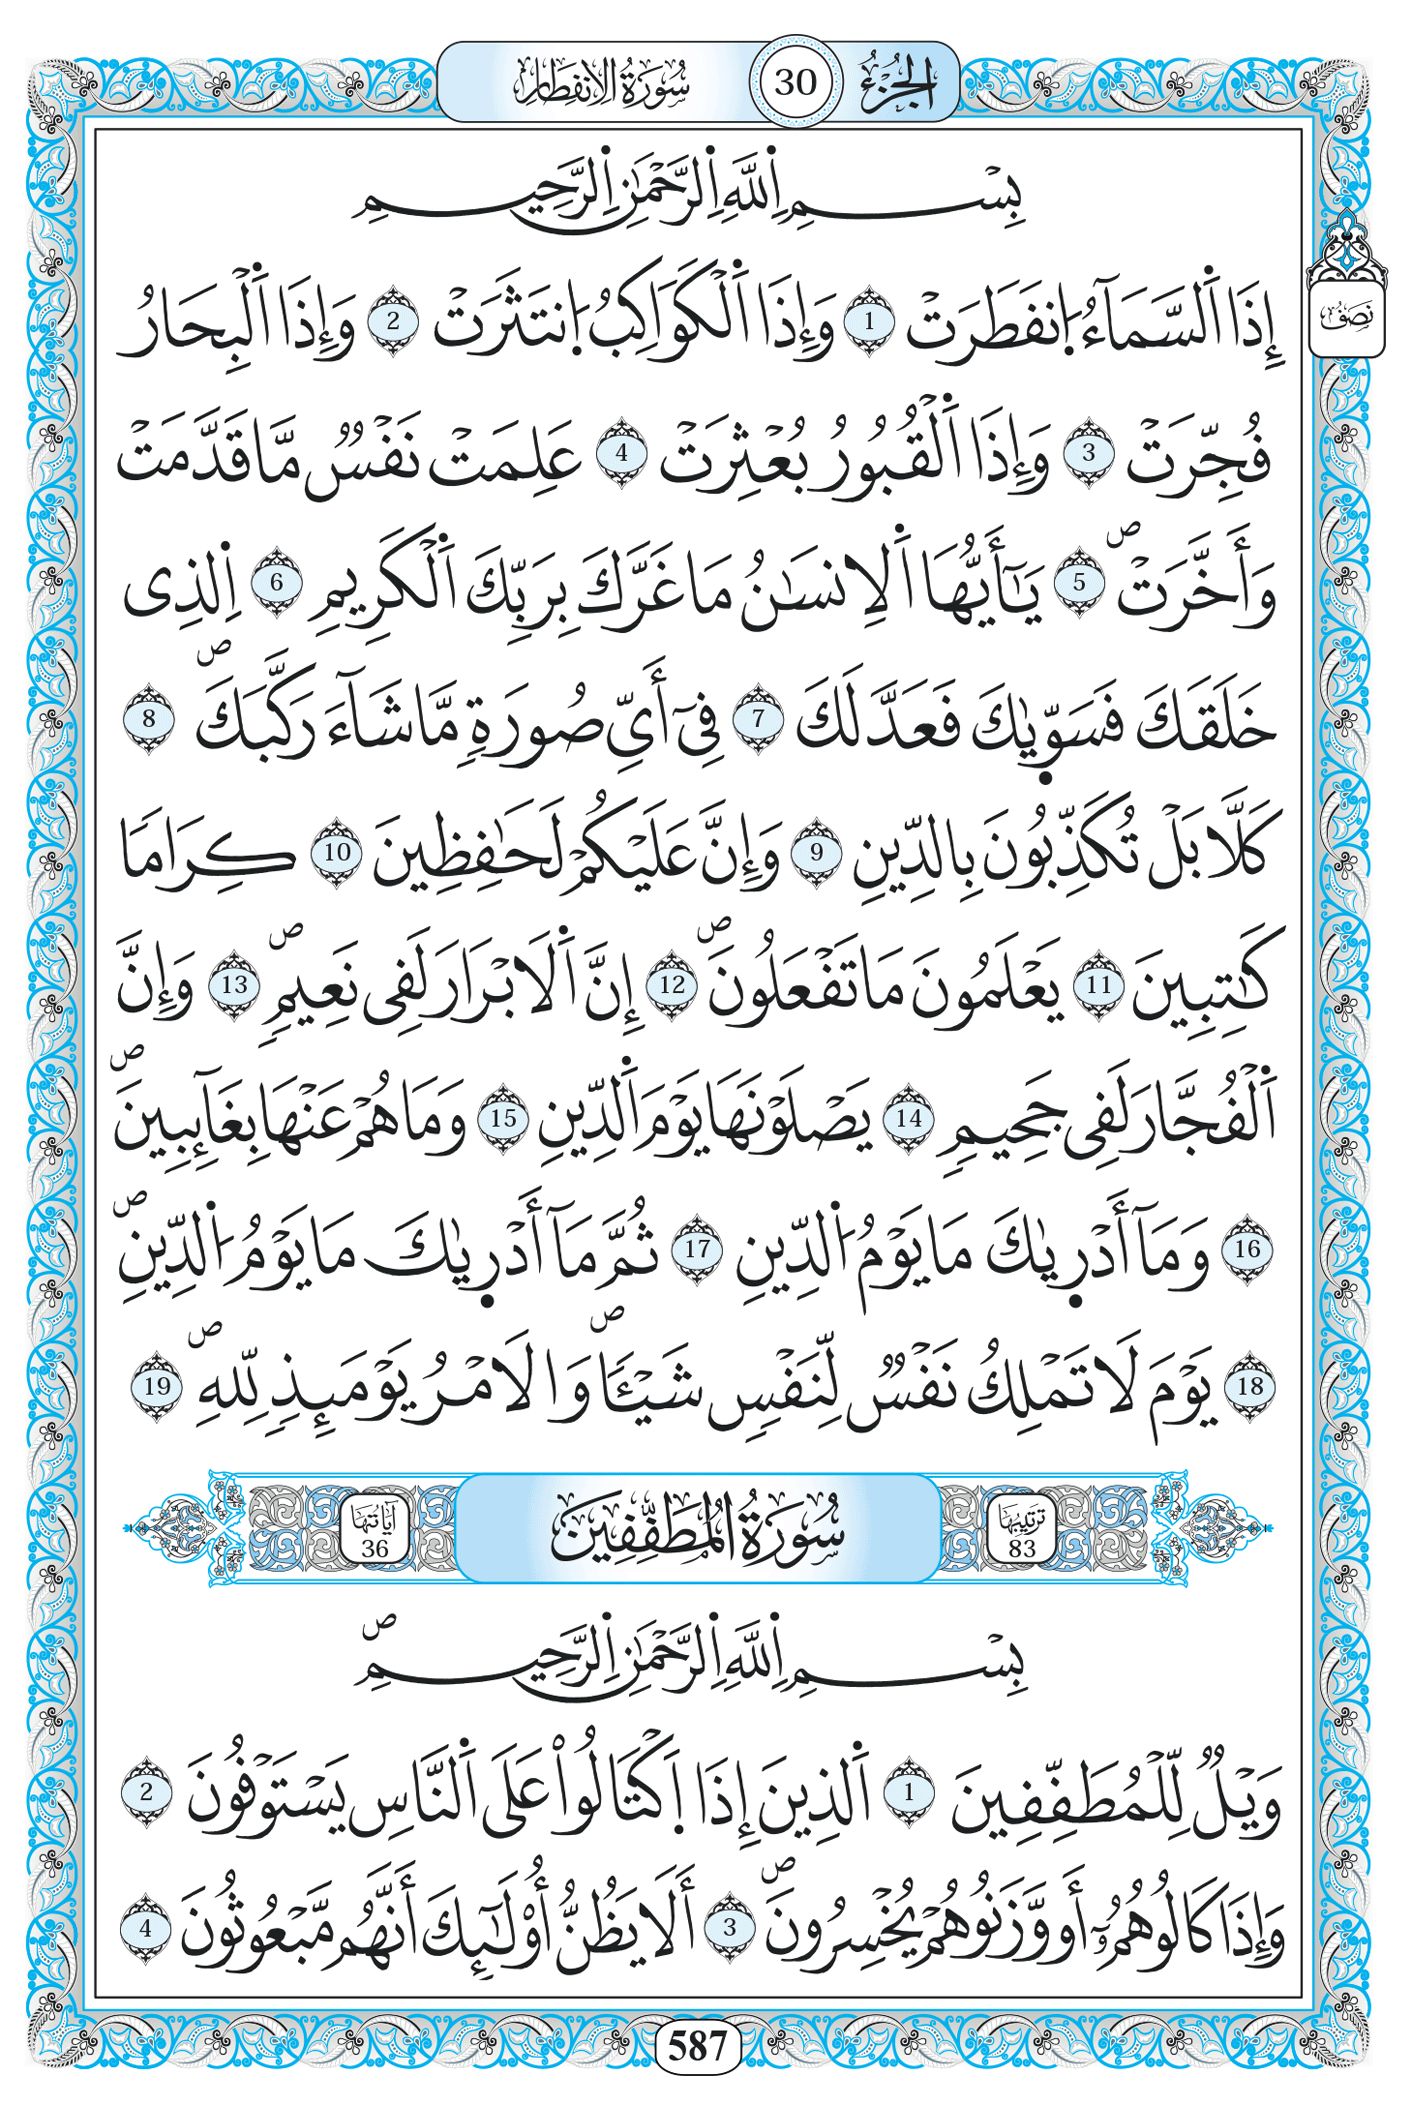 الجزء 30 سورة الانفطار
بِسْمِ اِللَّهِ اِلرَّحْمَٰنِ اِلرَّحِيمِ
نصف
إِذَا اَلسَّمَآءُ اُ۪نفَطَرَتْ 1 وَإِذَا اَلْكَوَاكِبُ اُ۪نتَثَرَتْ 2 وَإِذَا اَلْبِحَارُ
فُجِّرَتْ 3 وَإِذَا اَلْقُبُورُ بُعْثِرَتْ 4 عَلِمَتْ نَفْسٌ مَّا قَدَّمَتْ
وَأَخَّرَتْ ص 5 يَٰٓأَيُّهَا اَلِانسَٰنُ مَا غَرَّكَ بِرَبِّكَ اَلْكَرِيمِ 6 اِلذِى
خَلَقَكَ فَسَوّ۪يٰكَ فَعَدَّلَكَ 7 فِىٓ أَىِّ صُورَةٍ مَّا شَآءَ رَكَّبَكَ ص 8
كَلَّا بَلْ تُكَذِّبُونَ بِالدِّينِ 9 وَإِنَّ عَلَيْكُمْ لَحَٰفِظِينَ 10 كِرَامًا
كَٰتِبِينَ 11 يَعْلَمُونَ مَا تَفْعَلُونَ ص 12 إِنَّ اَلَابْرَارَ لَفِى نَعِيمٍ ص 13 وَإِنَّ
اَلْفُجَّارَ لَفِى جَحِيمٍ 14 يَصْلَوْنَهَا يَوْمَ اَلدِّينِ 15 وَمَا هُمْ عَنْهَا بِغَآئِبِينَ ص
16 وَمَآ أَدْر۪يٰكَ مَا يَوْمُ اُ۬لدِّينِ 17 ثُمَّ مَآ أَدْر۪يٰكَ مَا يَوْمُ اُ۬لدِّينِ ص
18 يَوْمَ لَا تَمْلِكُ نَفْسٌ لِّنَفْسٍ شَيْـًٔا ص وَالَامْرُ يَوْمَئِذٍ لِّلهِ ص 19
ترتيبها 83 سورة المطففين آياتها 36
بِسْمِ اِللَّهِ اِلرَّحْمَٰنِ اِلرَّحِيمِ ص
وَيْلٌ لِّلْمُطَفِّفِينَ 1 اَلذِينَ إِذَا اَ۪كْتَالُوا۟ عَلَى اَلنَّاسِ يَسْتَوْفُونَ 2
وَإِذَا كَالُوهُمُۥٓ أَو وَّزَنُوهُمْ يُخْسِرُونَ ص 3 أَلَا يَظُنُّ أُوْلَٰٓئِكَ أَنَّهُم مَّبْعُوثُونَ 4
587